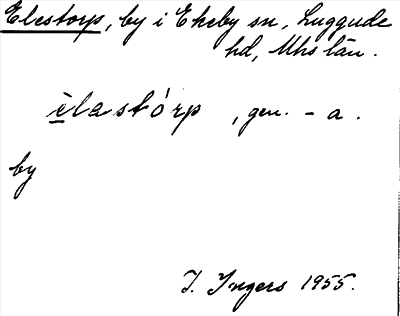 Elestorp, by i Ekeby sn, Luggude
hd, Mhs län.
èlastórp, gen. - a.
by
I. Ingers 1955.